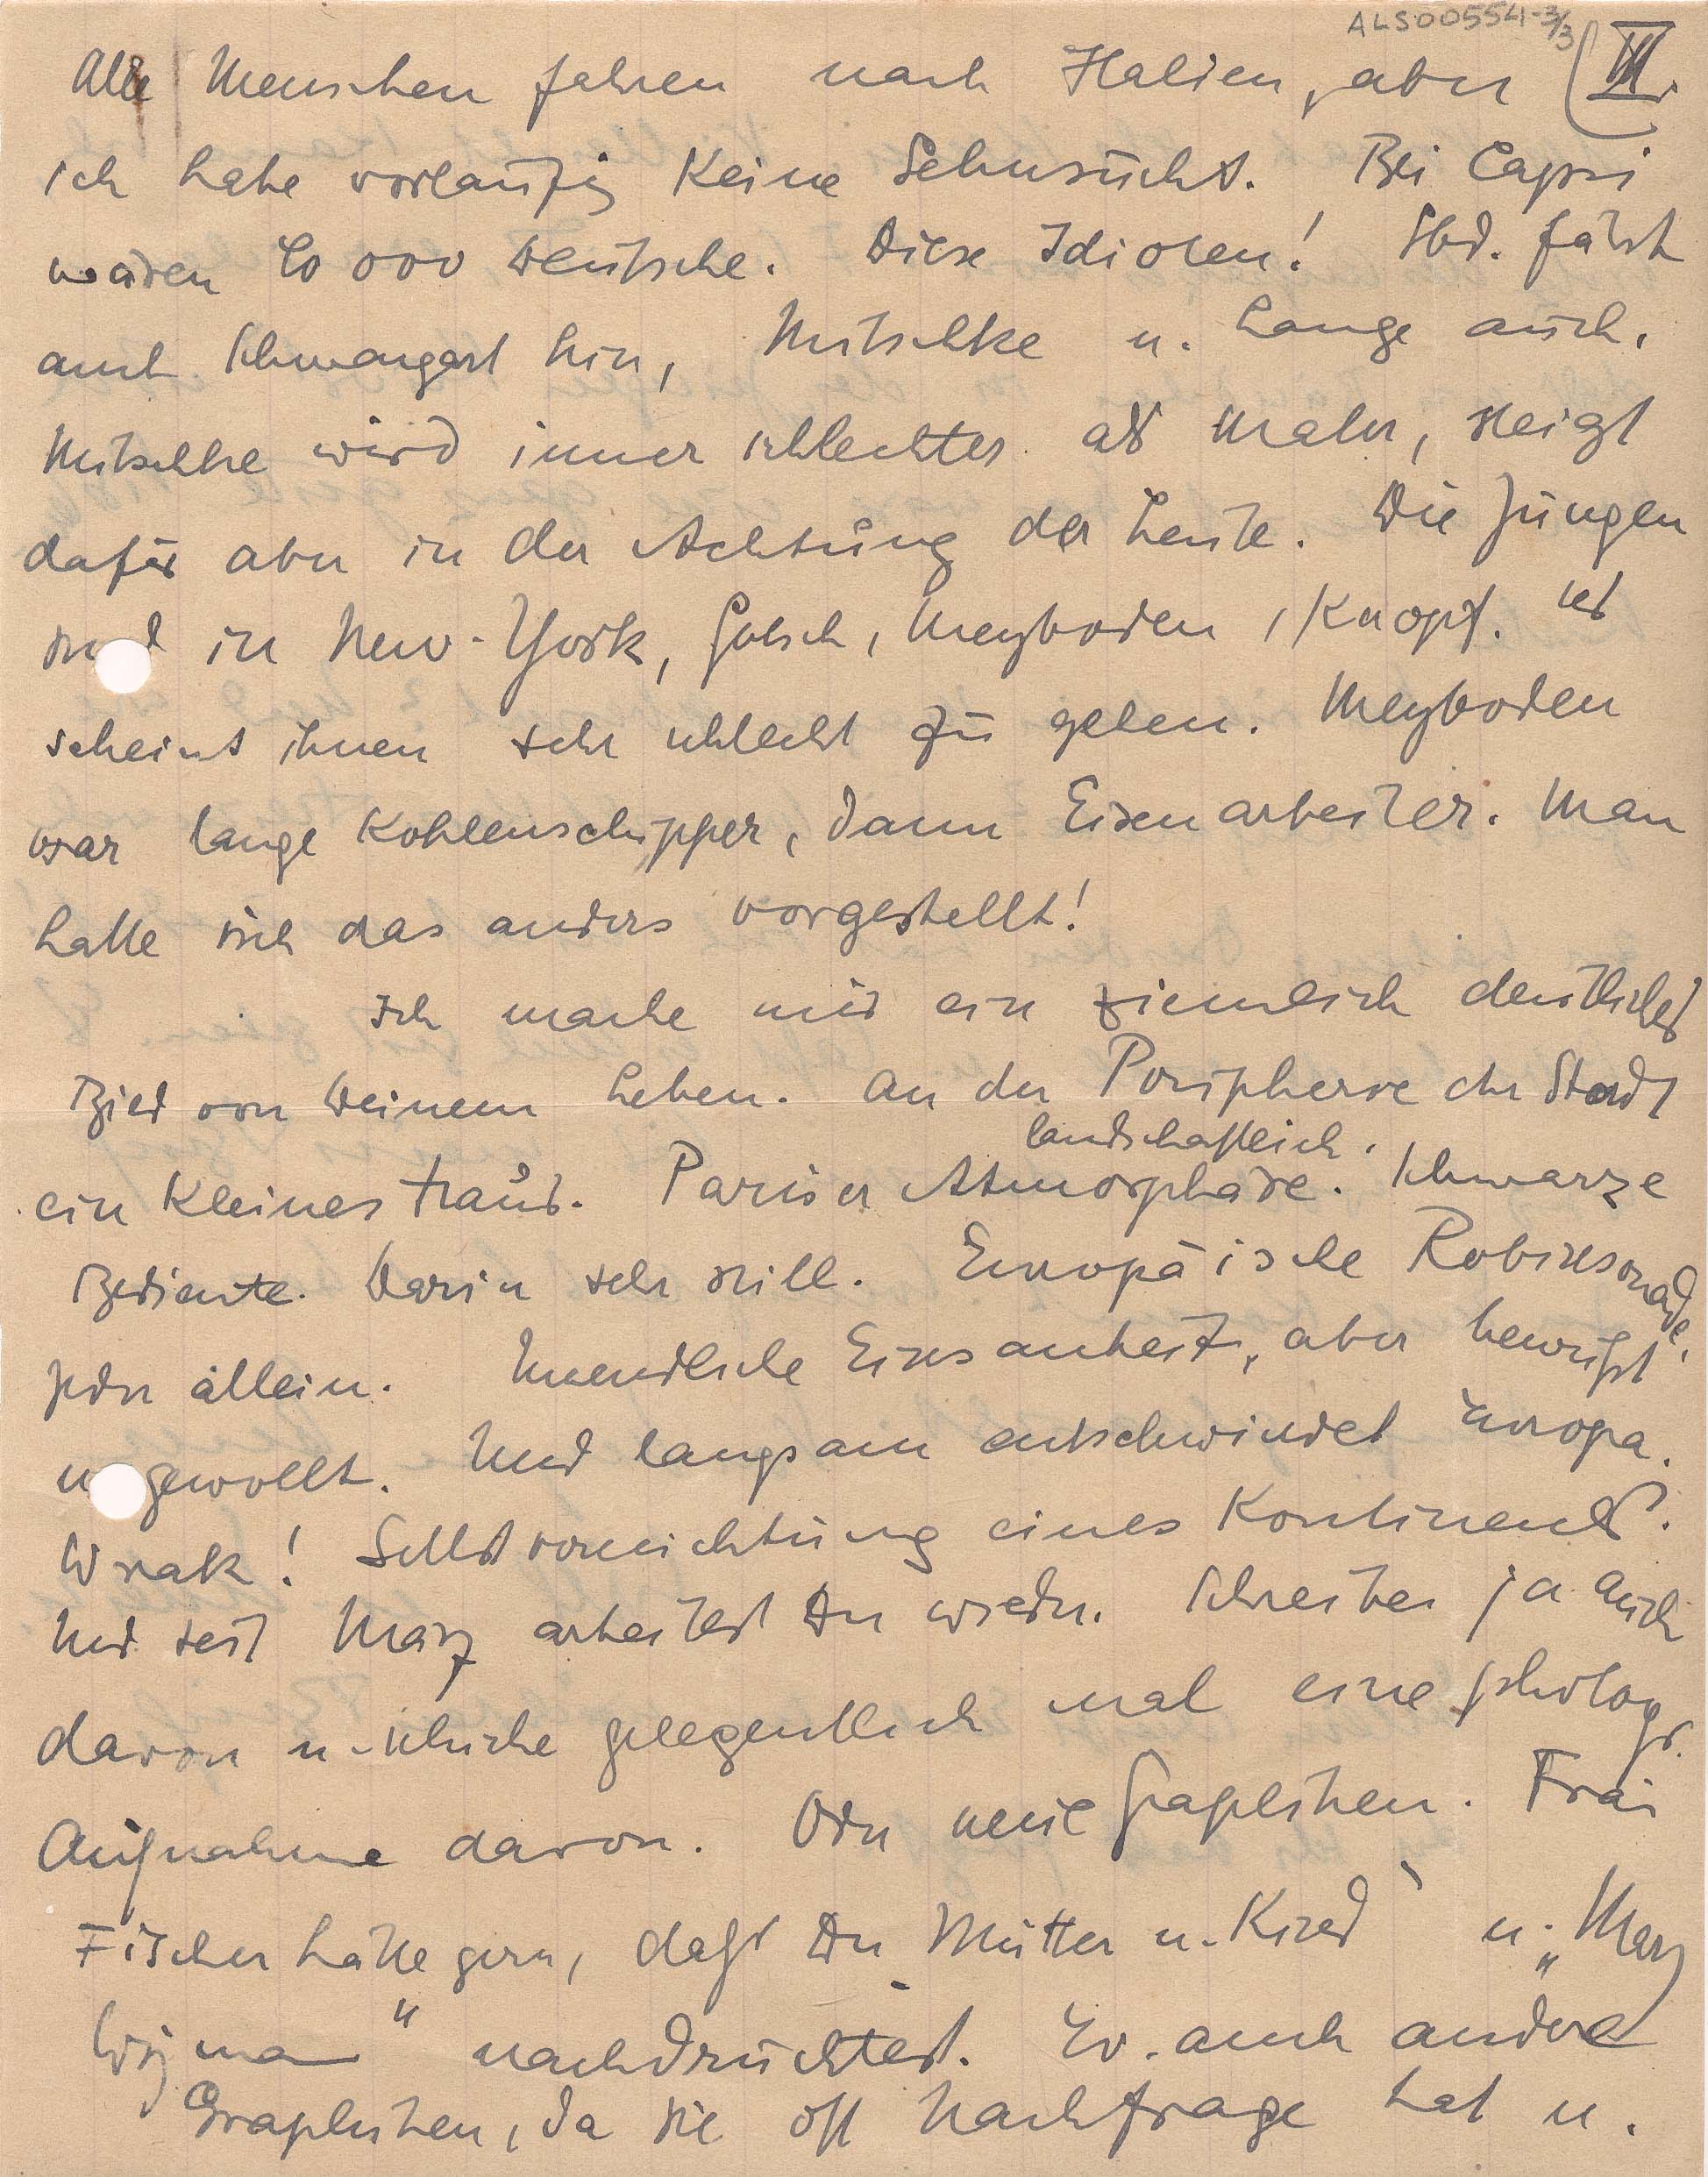 ALS00554-3/3
III.
Alle Menschen fahren nach Italien, aber
ich habe vorläufig keine Sehnsucht. Bei Capri
waren 60 000 Deutsche. Diese Idioten! fährt
auch Schwangart hin, Mitschke u. Lange auch.
Mitschke wird immer schlechter als Maler, steigt
dafür aber in der Achtung der Leute. Die Jungen
sind in New-York, Golsch, Meyboden, Knopf. Es
scheint ihnen sehr schlecht zu gehen. Meyboden
war lange Kohlenschipper, dann Eisenarbeiter. Man
hatte sich das anders vorgestellt!
Ich mache mir ein ziemlich deutliches
Bild von Deinem Leben. An der Peripherie der Stadt
ein kleines Haus. Pariser Atmosphäre. landschaftlich. Schwarze
Bediente. Darin sehr still. Europäische Robinsonade.
Jeder allein. Unendliche Einsamkeit, aber bewußt
u. gewollt. Und langsam entschwindet Europa.
Wrak! Selbstvernichtung eines Kontinents.
Und seit März arbeitest Du wieder. Schreibe ja auch
davon u. schicke gelegentlich mal eine photogr.
Aufnahme davon. Oder neue Graphiken. Frau
Fischer hätte gern, daß Du Mutter u. Kind" u. „Mary
Wigman" nachdrucktest. Ev. auch andere
Graphiken, da sie oft Nachfrage hat u.